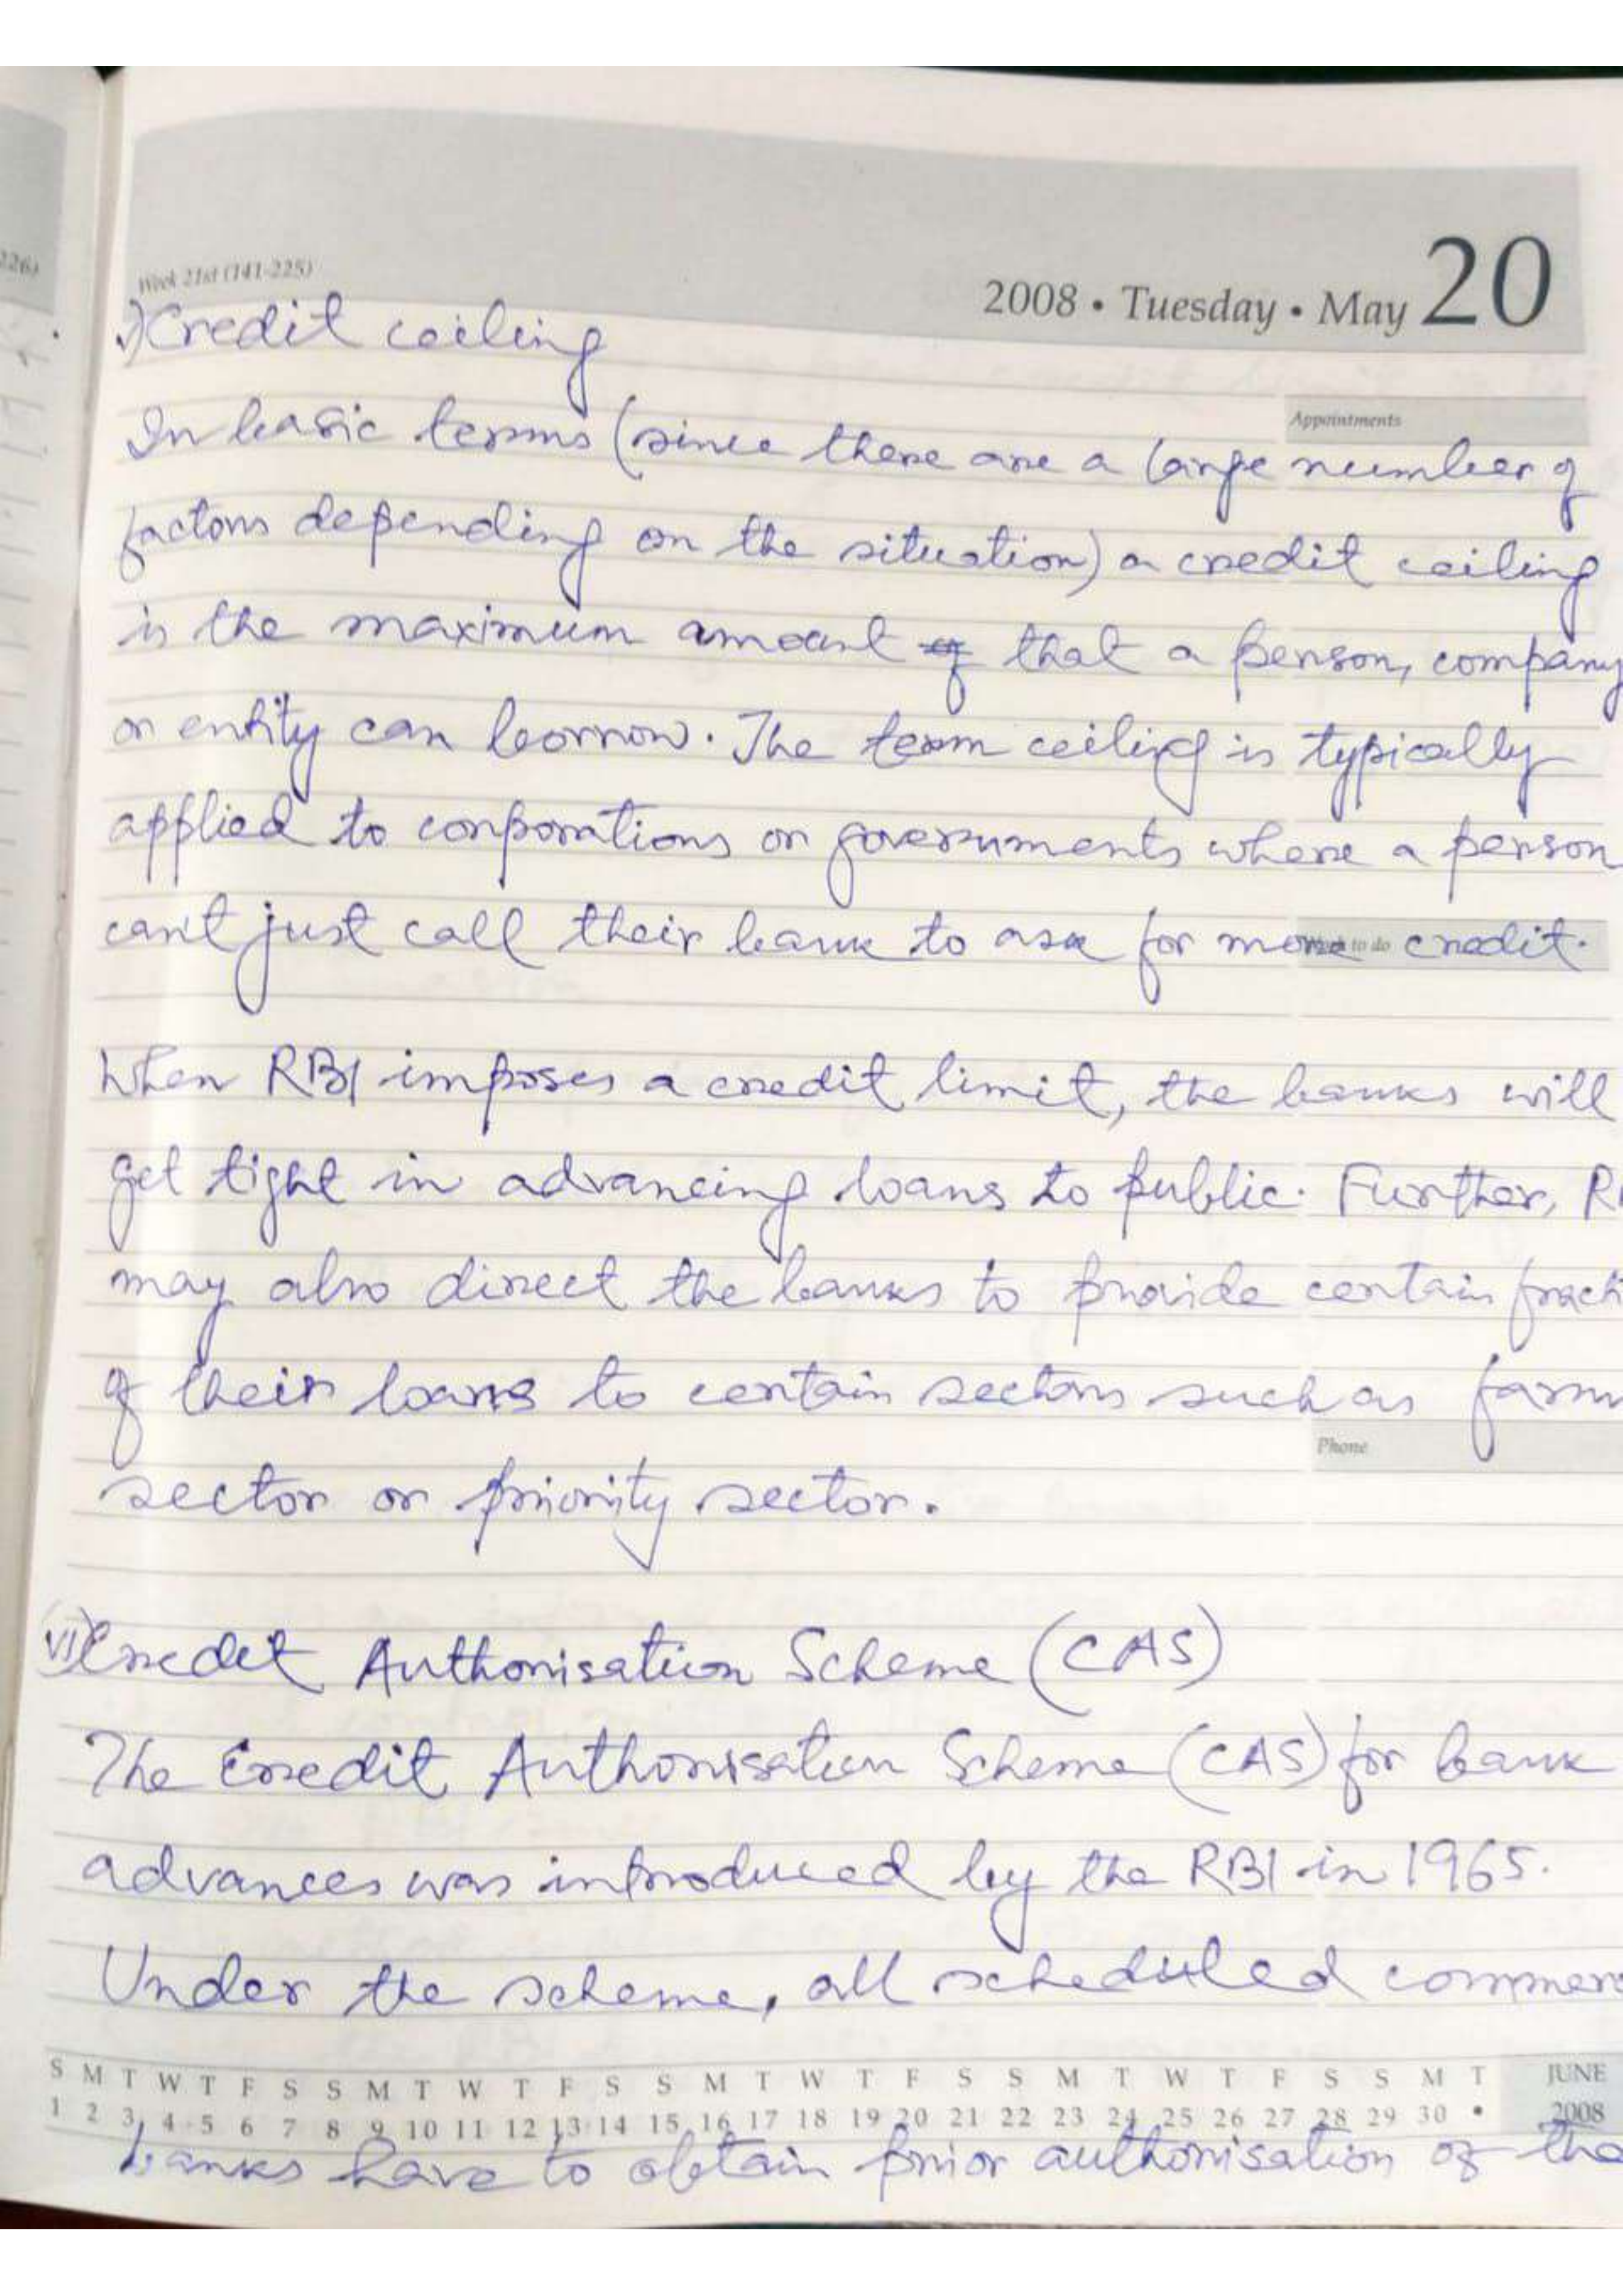 226)
Week 21st (141-225)
2008 • Tuesday • May 20
v) Credit ceiling
Appointments
In basic terms (since there are a large number of
factors depending on the situation) a credit ceiling
is the maximum amount of that a person, company
or entity can borrow. The term ceiling is typically
applied to corporations or governments where a person
can't just call their bank to ask for more credit.
to do
When RBI imposes a credit limit, the banks will
get tight in advancing loans to public. Further, R
may also direct the banks to provide certain fract
of their loans to certain sectors such as farm
Phone
sector or priority sector.
VI) Credit Authorisation Scheme (CAS)
The Credit Authorisation Scheme (CAS) for bank
advances was introduced by the RBI in 1965.
Under the scheme, all scheduled commer
S M T W T F S S M T W T F S S M T W T F S S M T W T F S S M T JUNE
1 2 3 4 5 6 7 8 9 10 11 12 13 14 15 16 17 18 19 20 21 22 23 24 25 26 27 28 29 30 • 2008
banks have to obtain prior authorisation of the